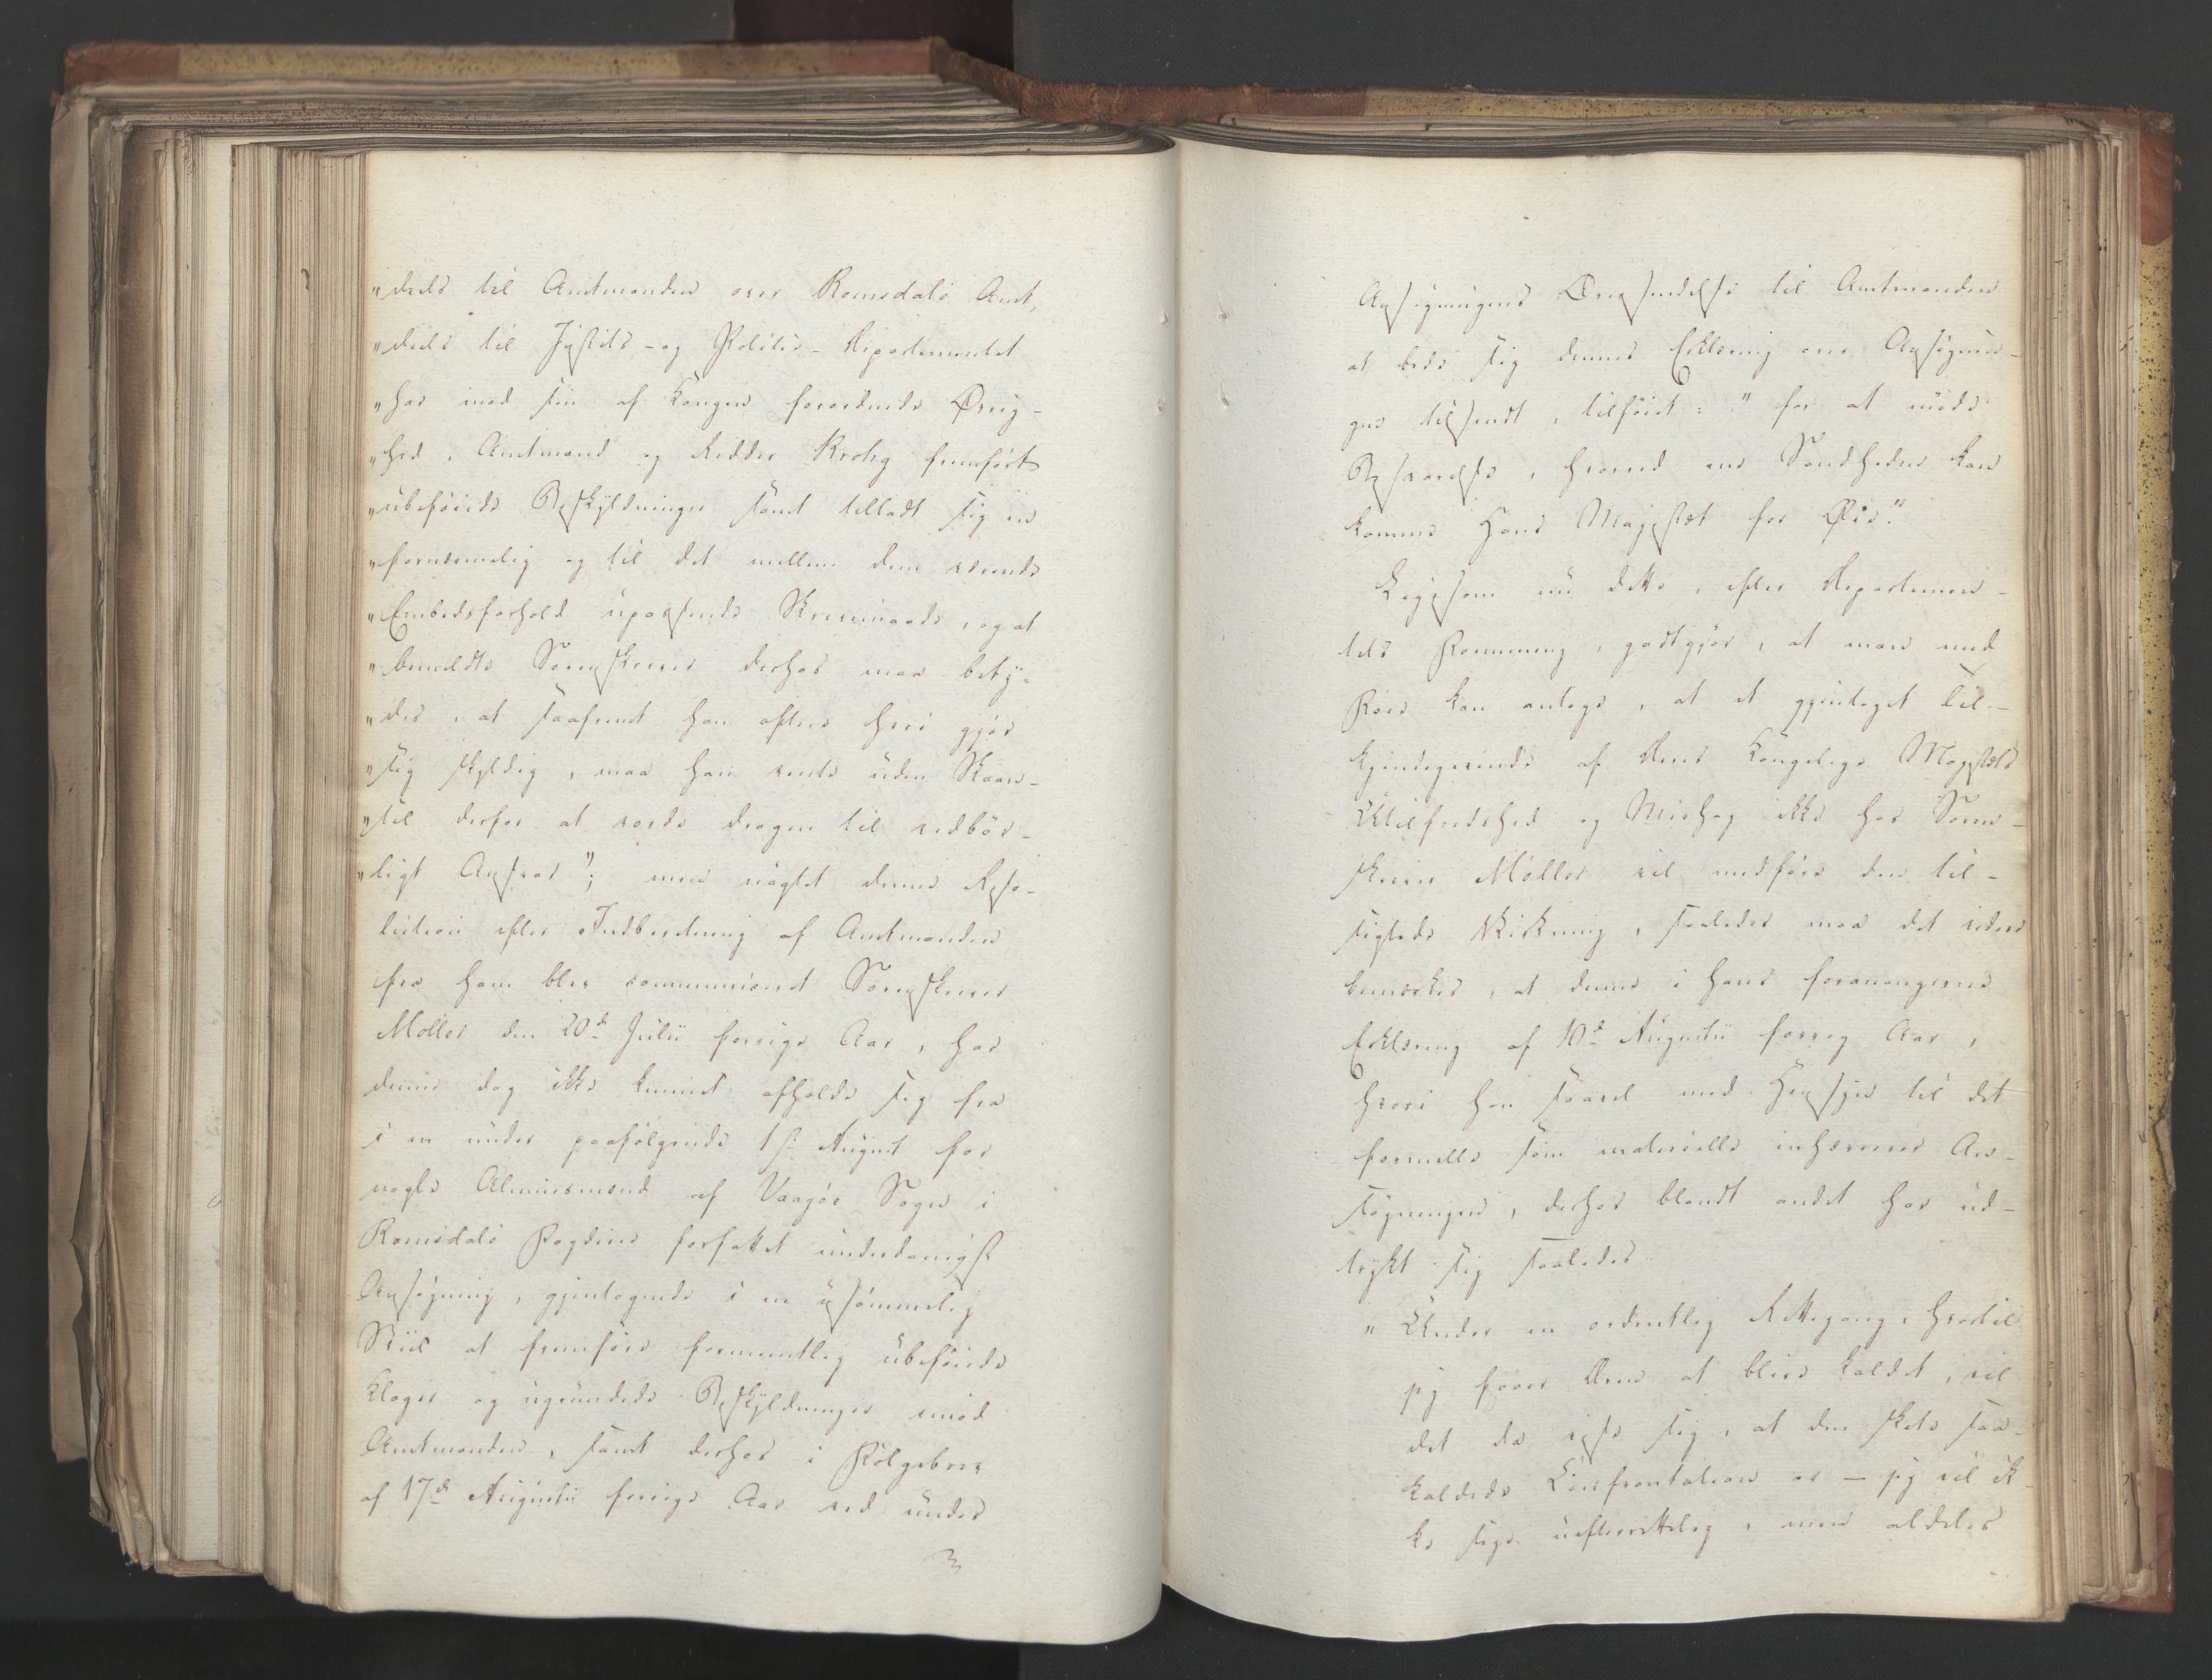 "deels til Amtmanden over Romsdals Amt,
"deels til Justits- og Politie-Departementet
"har mod sin af Kongen forordnede Øvrig-
"hed, Amtmand og Ridder Krohg fremført
"ubeføiede Beskyldninger samt tilladt sig en
"fornærmelig og til det mellem dem værende
"Embedsforhold upassende Skrivemaade, og at
"bemeldte Sorenskriver derhos maa bety-
"des, at saafremt han oftere heri gjør
"sig skyldig, maa han vente uden Skaan-
"sel derfor at vorde dragen til vedbør-
"ligt Ansvar"; men uagtet denne Reso-
lution efter Indberetning af Amtmanden
fra ham blev communiceret Sorenskriver
Møller den 20de Julii forrige Aar, har
denne dog ikke kunnet afholde sig fra
i en under paafølgende 1ste August for
nogle Almuesmænd af Vaagøe Sogn i
Romsdals Fogderie forfattet underdanigst
Ansøgning, gjentagende i en usømmelig
Stiil at fremføre formeentlig ubeføiede
Klager og ugrundede Beskyldninger imod
Amtmanden, samt derhos i Følgebrev
af 17de Augustii forrige Aar ved under
Ansøgningens Oversendelse til Amtmanden
at bede sig dennes Erklæring over Ansøgnin-
gen tilsendt, tilføiet: "for at møde
Besvarelse, hvorved en Sandheden kan
komme Hans Majestæt for Øie."
Ligesom nu dette, efter Departemen-
tets Formening, godtgjør, at man med
Føie kan antage, at et gjentaget Til-
kjendegivende af Deres Kongelige Majestæts
Utilfredshed og Mishag ikke hos Soren-
skriver Møller vil medføre den til-
sigtede Virkning, saaledes maa det videre
bemærkes, at denne i hans foranangivne
Erklæring af 10de Augustii forrig Aar,
hvori han saavel med Hensyn til det
formelle som materielle inhærerer An-
søgningen, derhos blandt andet har ud-
trykt sig saaledes
"Under en ordentlig Rettegang, hvortil
jeg haver Dem at blive kaldet, vil
det da vise sig, at den skete saa-
kaldede Confrontation er — jeg vil ik-
ke sige uefterrettelig, men aldeles